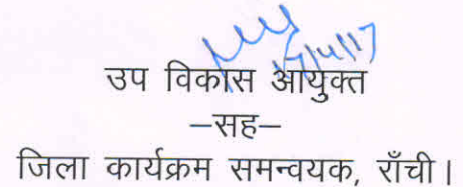 17/4/17
उप विकास आयुक्त
–सह–
जिला कार्यक्रम समन्वयक, राँची।